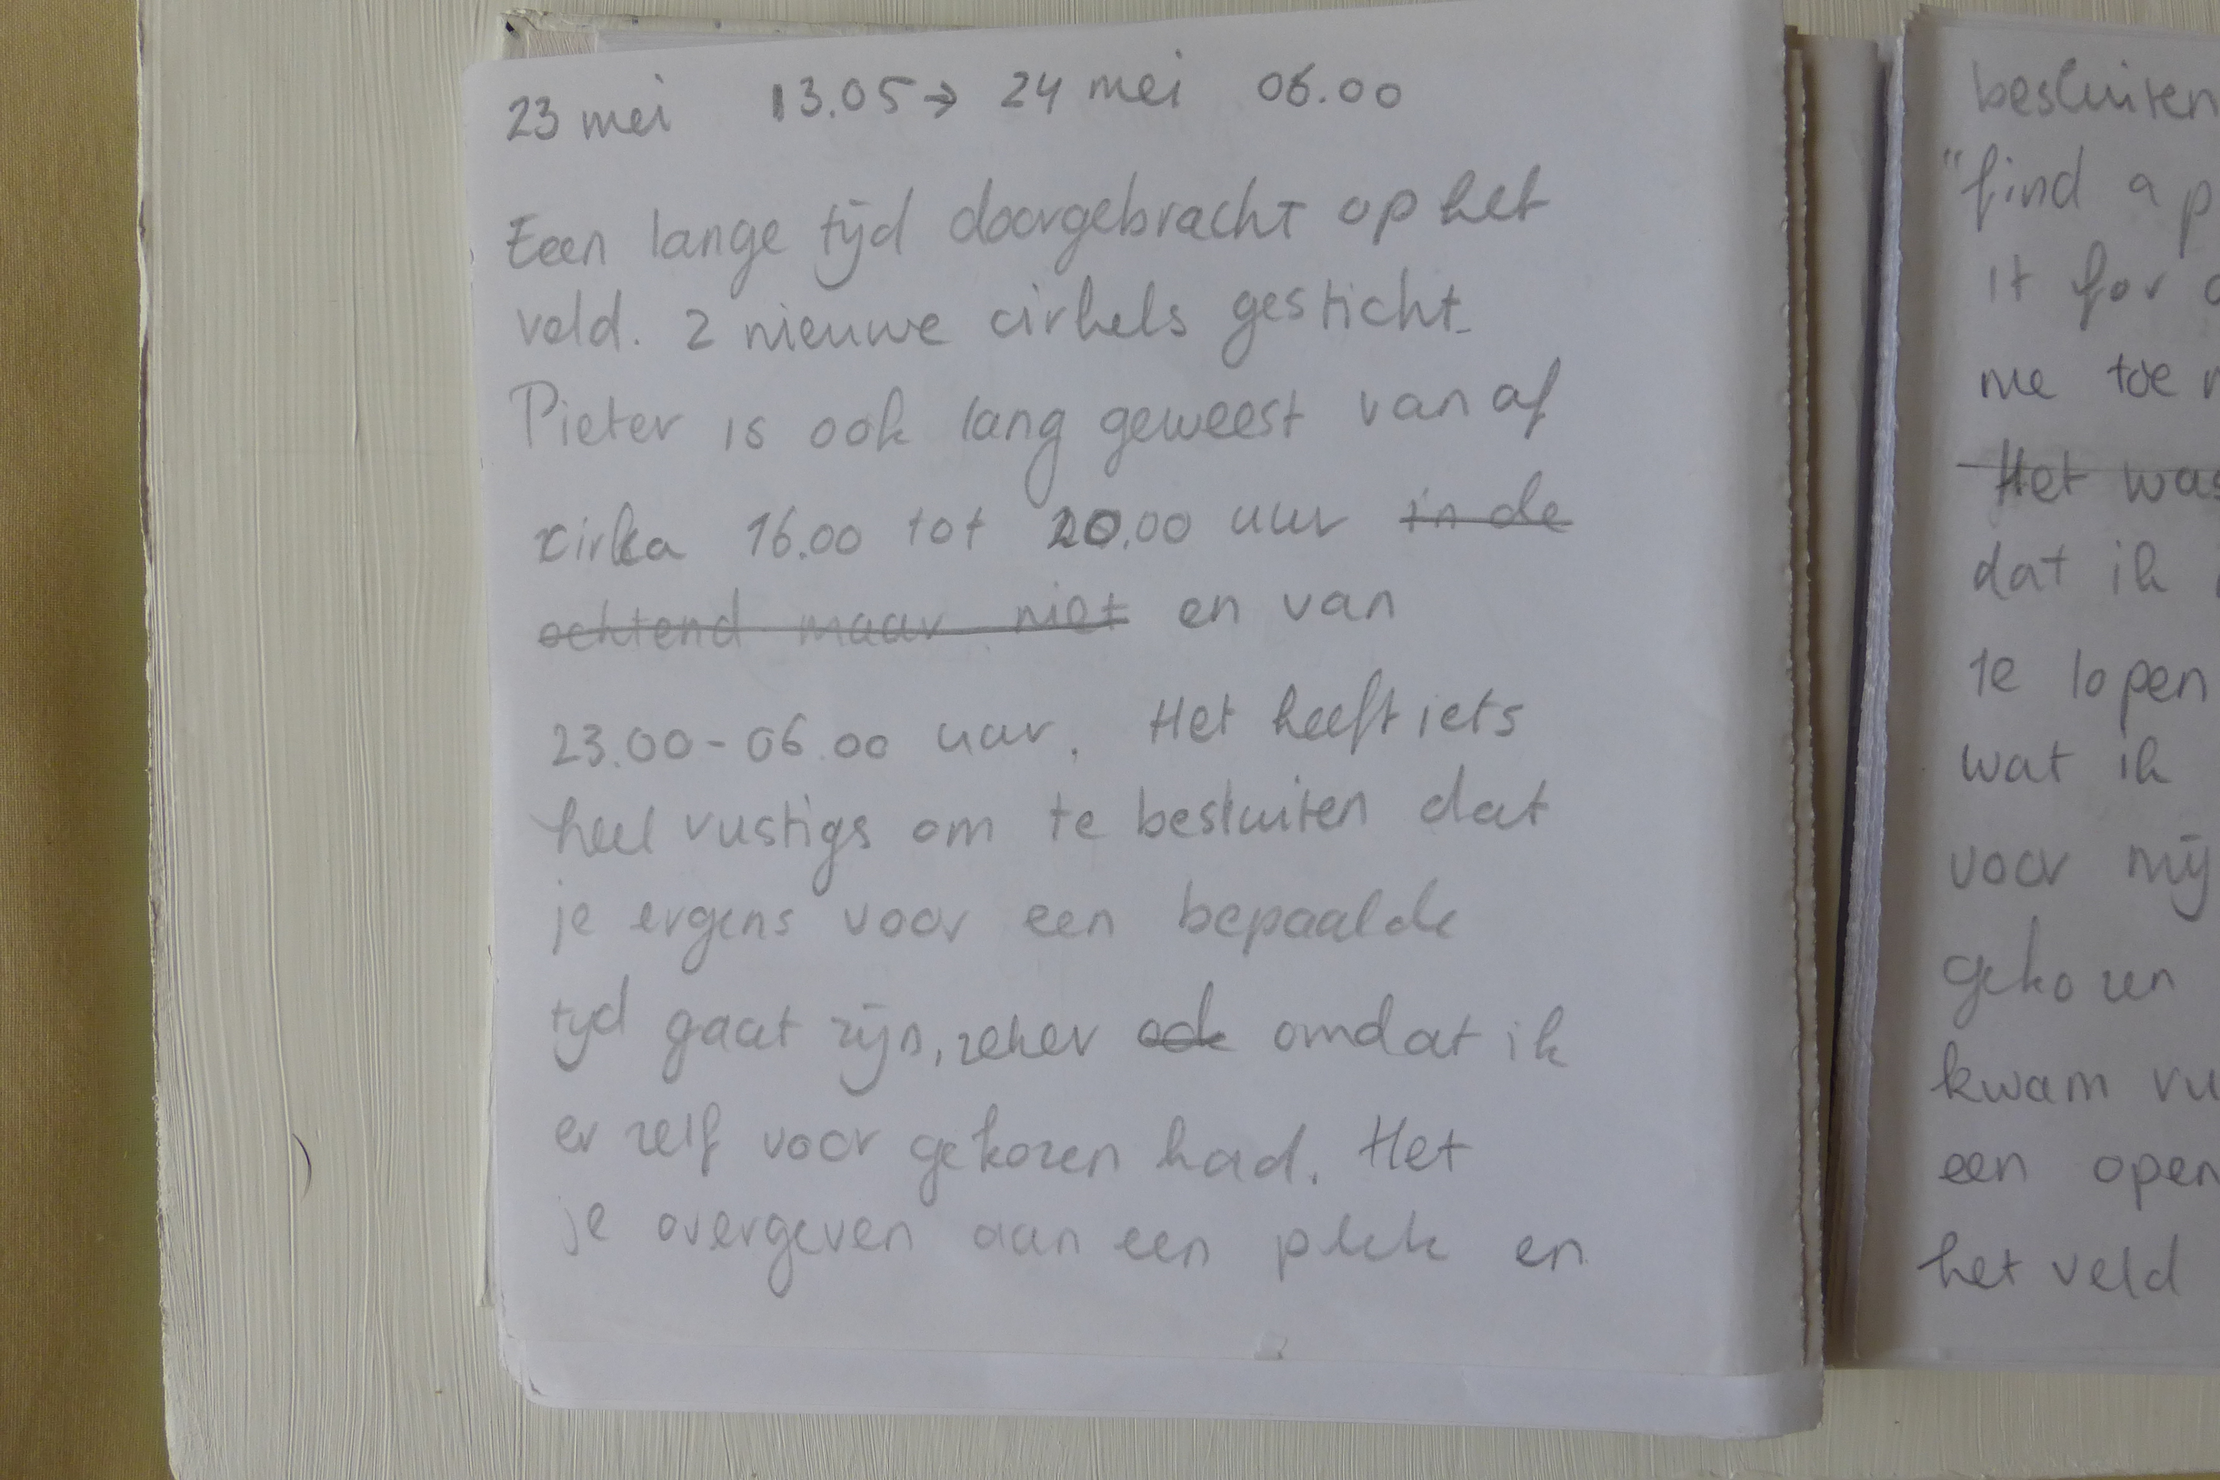 23 mei 13.05 → 24 mei 06.00
Een lange tijd doorgebracht op het
veld. 2 nieuwe cirkels gesticht.
Pieter is ook lang geweest vanaf
cirka 16.00 tot 20.00 uur in de
ochtend maar niet en van
23.00-06.00 uur. Het heeft iets
heel rustigs om te besluiten dat
je ergens voor een bepaalde
tijd gaat zijn, zeker ook omdat ik
er zelf voor gekozen had. Het
je overgeven aan een plek en
besluiten
"find a p
it for
me toe
Het was
dat ik
te lopen
wat ik
voor mij
gekozen
kwam ru
een open
het veld